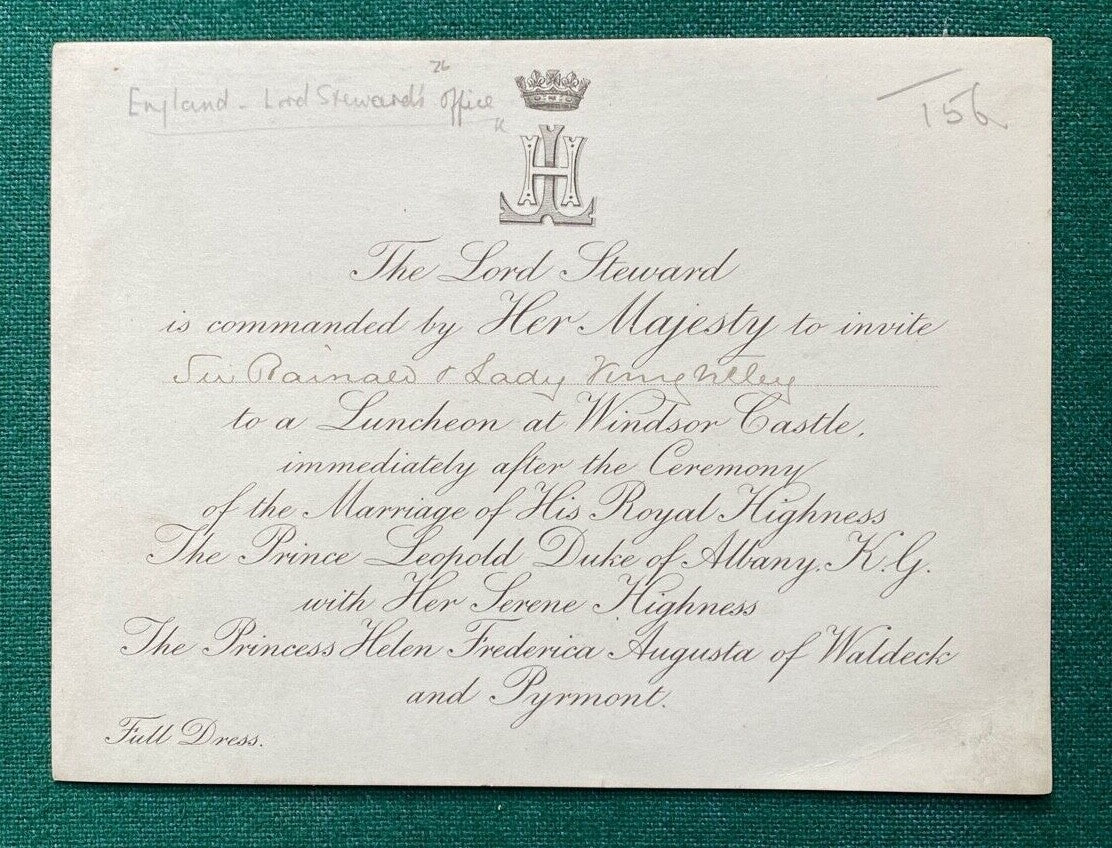 England - Lord Steward's Office
26
156
LH
The Lord Steward
is commanded by Her Majesty to invite
Sir Rainald & Lady Knightley
to a Luncheon at Windsor Castle,
immediately after the Ceremony
of the Marriage of His Royal Highness
The Prince Leopold Duke of Albany, K.G.
with Her Serene Highness
The Princess Helen Frederica Augusta of Waldeck
and Pyrmont.
Full Dress.